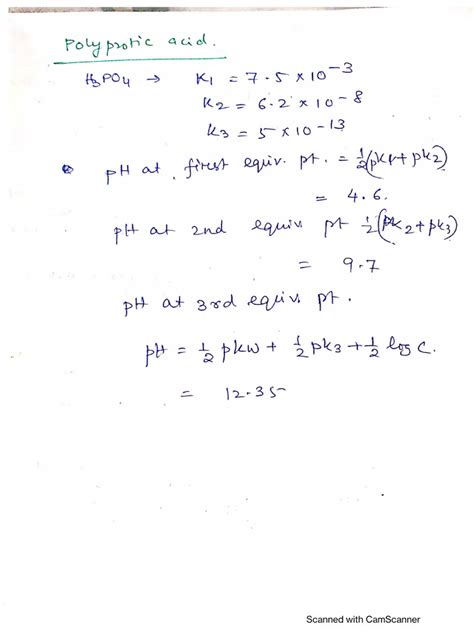 Polyprotic acid.
H3PO4 → K1 = 7.5 × 10−3
K2 = 6.2 × 10−8
K3 = 5 × 10−13
pH at first equiv. pt. = 1/2(pK1+pK2)
= 4.6.
pH at 2nd equiv pt 1/2(pK2+pK3)
= 9.7
pH at 3rd equiv. pt.
pH = 1/2 pKw + 1/2 pK3 + 1/2 log C.
= 12.35
Scanned with CamScanner